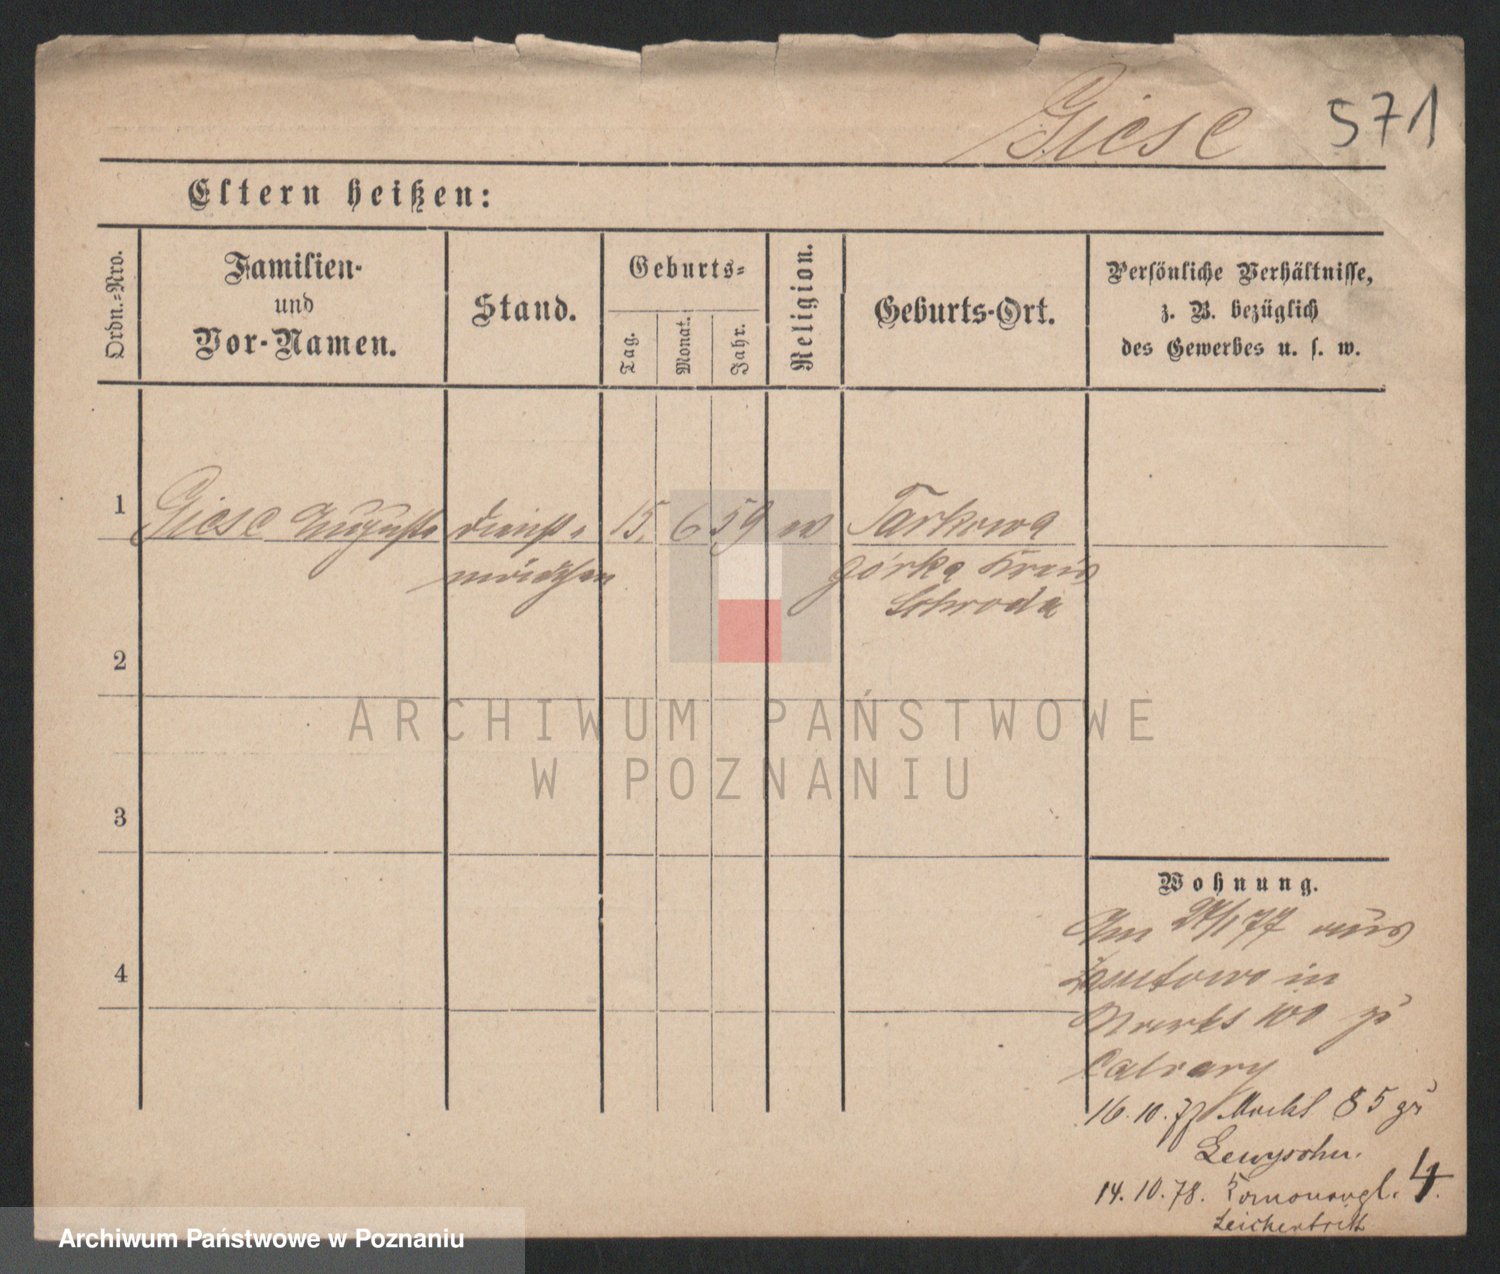 Giese 571
Eltern heißen:
Ordn.=Nro.
Familien-
und
Vor-Namen.
Stand.
Geburts=
Tag.
Monat.
Jahr.
Religion.
Geburts-Ort.
Persönliche Verhältnisse,
z. B. bezüglich
des Gewerbes u. s. w.
1 Giese Auguste Dienst= 15. 6 59 Tarkowa
mädchen górka Kreis
Schroda
2
3
4
Wohnung.
Am 24/1 77 aus
in
Markt 100 zu
16.10.77 Markt 85 zu
Lewysohn.
14.10.78. 4.
Leichentritt
ARCHIWUM PAŃSTWOWE
W POZNANIU
Archiwum Państwowe w Poznaniu